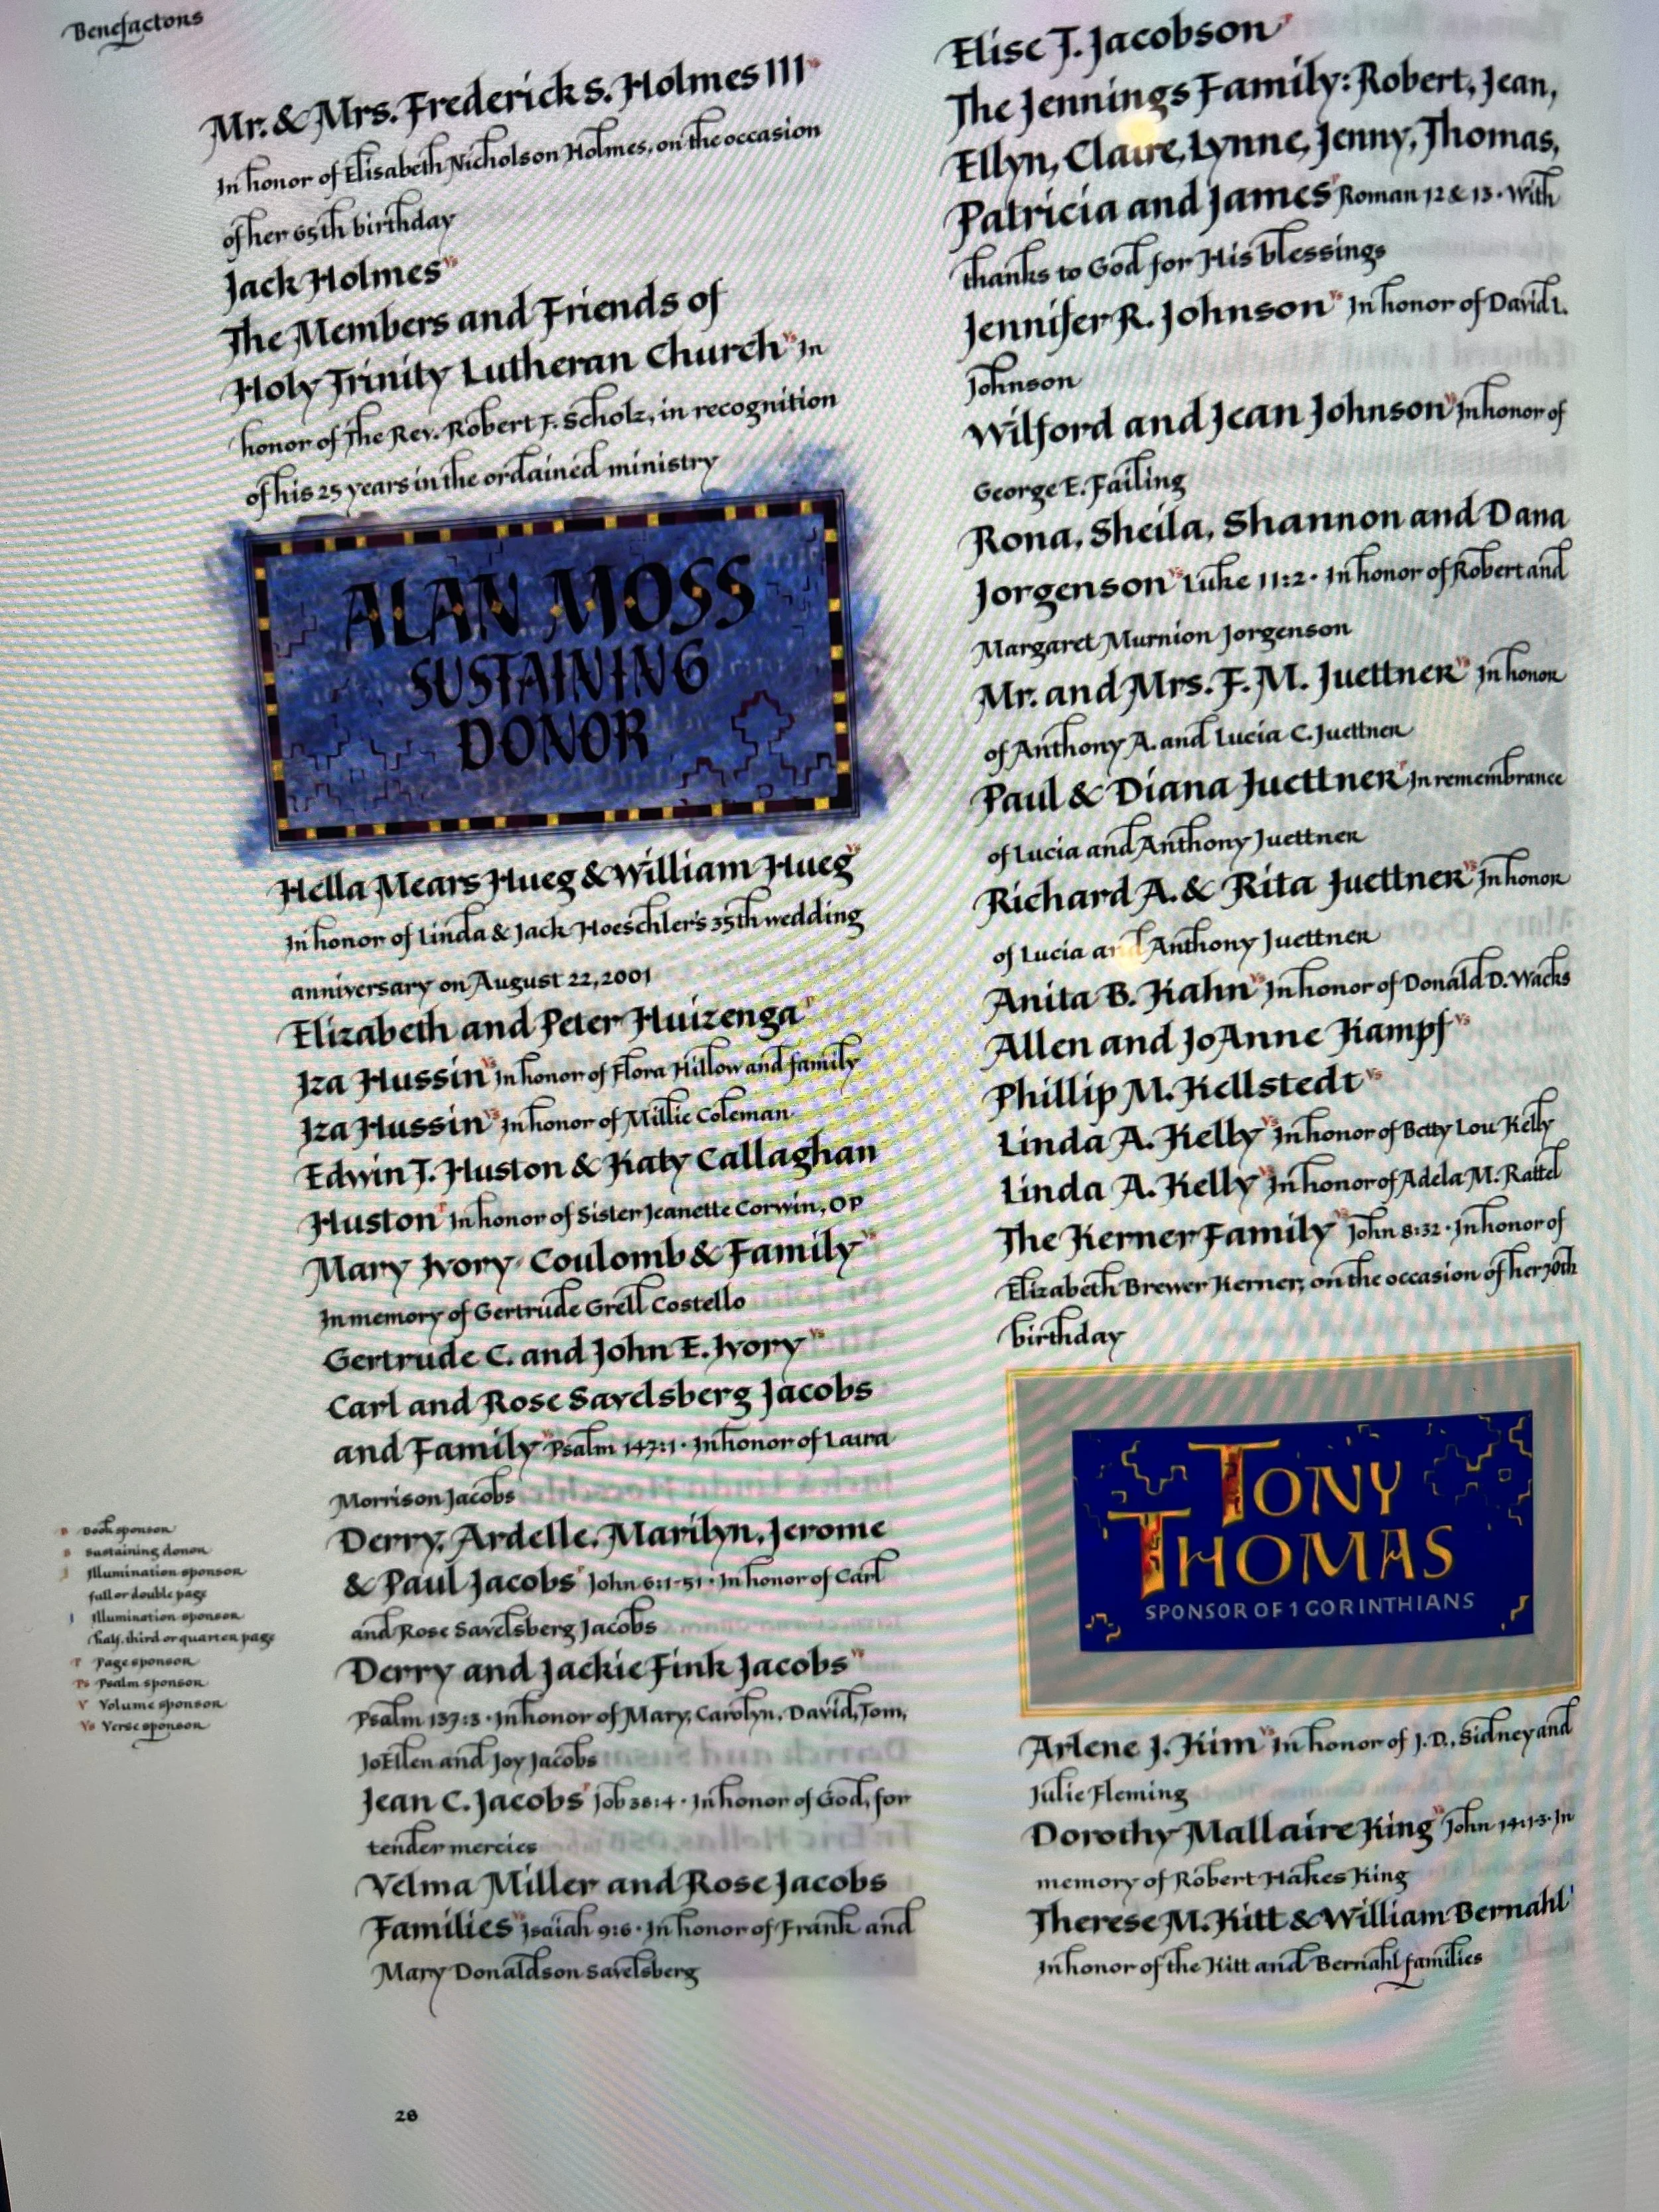 Benefactors
Mr. & Mrs. Frederick S. Holmes III
In honor of Elisabeth Nicholson Holmes, on the occasion
of her 65th birthday
Jack Holmes Vs
The Members and Friends of
Holy Trinity Lutheran Church Vs In
honor of The Rev. Robert F. Scholz, in recognition
of his 25 years in the ordained ministry
ALAN MOSS
SUSTAINING
DONOR
Hella Mears Hueg & William Hueg
In honor of Linda & Jack Hoeschler's 35th wedding
anniversary on August 22, 2001
Elizabeth and Peter Huizenga
Iza Hussin Vs In honor of Flora Hillow and family
Iza Hussin Vs In honor of Millie Coleman
Edwin T. Huston & Katy Callaghan
Huston In honor of Sister Jeanette Corwin, OP
Mary Ivory Coulomb & Family Vs
In memory of Gertrude Grell Costello
Gertrude C. and John E. Ivory Vs
Carl and Rose Savelsberg Jacobs
and Family Psalm 147:1 · In honor of Laura
Morrison Jacobs
Derry, Ardelle, Marilyn, Jerome
& Paul Jacobs John 6:1-51 · In honor of Carl
and Rose Savelsberg Jacobs
Derry and Jackie Fink Jacobs Vs
Psalm 137:3 · In honor of Mary, Carolyn, David, Tom,
JoEllen and Joy Jacobs
Jean C. Jacobs Job 38:4 · In honor of God, for
tender mercies
Velma Miller and Rose Jacobs
Families Vs Isaiah 9:6 · In honor of Frank and
Mary Donaldson Savelsberg
B Book sponsor
S Sustaining donor
I Illumination sponsor
full or double page
I Illumination sponsor
half, third or quarter page
P Page sponsor
Ps Psalm sponsor
V Volume sponsor
Vs Verse sponsor
28
Elise T. Jacobson
The Jennings Family: Robert, Jean,
Ellyn, Claire, Lynne, Jenny, Thomas,
Patricia and James Roman 12 & 13 · With
thanks to God for His blessings
Jennifer R. Johnson Vs In honor of David L.
Johnson
Wilford and Jean Johnson Vs In honor of
George E. Failing
Rona, Sheila, Shannon and Dana
Jorgenson Vs Luke 11:2 · In honor of Robert and
Margaret Murnion Jorgenson
Mr. and Mrs. F. M. Juettner Vs In honor
of Anthony A. and Lucia C. Juettner
Paul & Diana Juettner In remembrance
of Lucia and Anthony Juettner
Richard A. & Rita Juettner Vs In honor
of Lucia and Anthony Juettner
Anita B. Kahn Vs In honor of Donald D. Wacks
Allen and JoAnne Kampf Vs
Phillip M. Kellstedt Vs
Linda A. Kelly Vs In honor of Betty Lou Kelly
Linda A. Kelly Vs In honor of Adela M. Rattel
The Kerner Family Vs John 8:32 · In honor of
Elizabeth Brewer Kerner, on the occasion of her 70th
birthday
TONY
THOMAS
SPONSOR OF 1 CORINTHIANS
Arlene J. Kim Vs In honor of J. D., Sidney and
Julie Fleming
Dorothy Mallaire King Vs John 14:1-3 · In
memory of Robert Hakes King
Therese M. Kitt & William Bernahl
In honor of the Kitt and Bernahl families